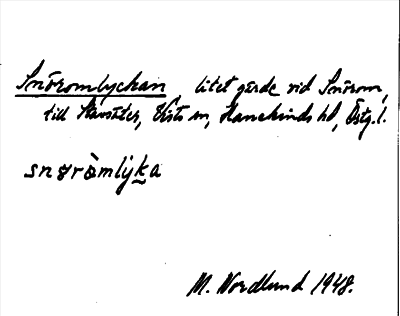 Snöromlyckan, litet gärde vid Snörom,
till Slamsäter, Vists sn, Hanekinds hd, Östg. l.
snøròmlyka
M. Nordlund 1948.